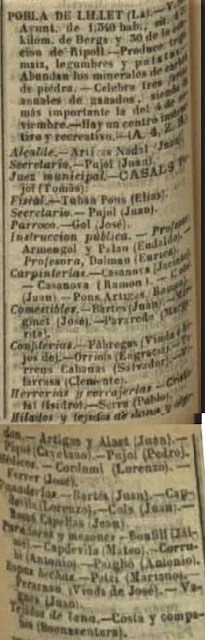 POBLA DE LILLET (La).—
Ayunt. de 1,340 hab., sit. á
kilom. de Berga y 30 de la
cion de Ripoll.—Produce
maiz, legumbres y patatas.
Abundan los minerales de
de piedra.—Celebra tres
anuales de ganados, siendo
más importante la del 4 de
viembre.—Hay un centro
tivo y recreativo.—(A.
Alcalde.—Artigas Nadal (Juan).
Secretario.—Pujol (Juan).
Juez municipal.—CASALS Y
jol (Tomás).
Fiscal.—Tubau Pons (Elías).
Secretario.—Pujol (Juan).
Parroco.—Gol (José).
Instruccion pública.—Profesor,
Armengol y Palau (Eudaldo).—
Profesora, Dalmau (Eurica).
Carpinterías.—Casanova (Jacinto)
—Casanova (Ramon).—
(Juan).—Pons Artigas
Comestibles.—Bartés (Juan).—
ginet (José).—Pararedo
rita).
Confiterías.—Fábregas (Viuda é
jos de).—Orriols (Engracia).—
rreus Cabanas (Salvador).—
larrasa (Clemente).
Herrerías y cerrajerías.—
fal (Isidro).—Serra (Pablo).
Hilados y tejidos de
—Artigas y Alset (Juan).—
Piqué (Cayetano).—Pujol (Pedro).
Cordomí (Lorenzo).—
Ferrer (José).
Panaderías.—Bartés (Juan).—Cap-
devila (Lorenzo).—Cols (Juan).—
Capellas (Juan).
Paradores y mesones.—Bonfill
—Capdevila (Mateo).—Corru-
(Antonio).—Puigbó (Antonio).
Ropas hechas.—Patzi (Mariano).
(Viuda de José).—
(Juan).
Tejidos de lana.—Costa y compa-
(Buenaventura).